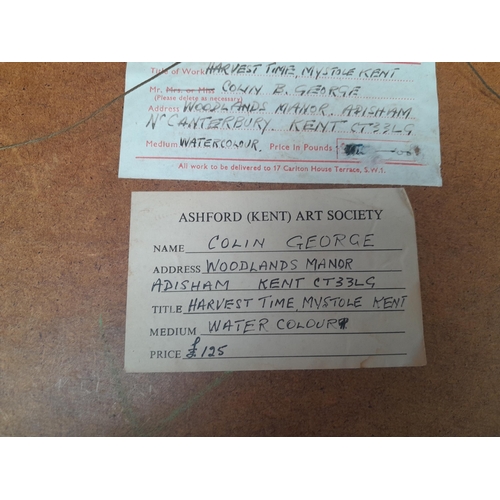 Title of Work HARVEST TIME, MYSTOLE KENT
Mr. Mrs. or Miss COLIN B. GEORGE
(Please delete as necessary)
Address WOODLANDS MANOR, ADISHAM
Nr CANTERBURY. KENT CT33LG
Medium WATERCOLOUR. Price in Pounds
All work to be delivered to 17 Carlton House Terrace, S.W.1.
ASHFORD (KENT) ART SOCIETY
NAME COLIN GEORGE
ADDRESS WOODLANDS MANOR
ADISHAM KENT CT33LG
TITLE HARVEST TIME, MYSTOLE KENT
MEDIUM WATER COLOUR
PRICE £125